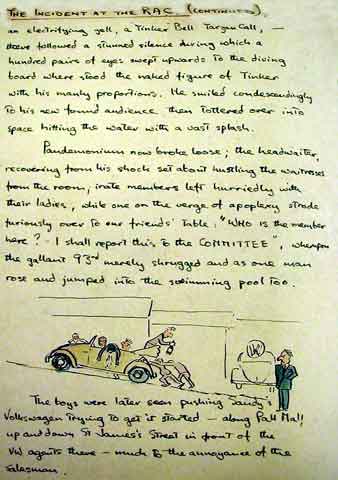 THE INCIDENT AT THE RAC (CONTINUED)
an electrifying yell, a Tinker Bell Tarzan Call, —
there followed a stunned silence during which a
hundred pairs of eyes swept upwards to the diving
board where stood the naked figure of Tinker
with his manly proportions. He smiled condescendingly
to his new found audience then tottered over into
space hitting the water with a vast splash.
Pandemonium now broke loose; the headwaiter,
recovering from his shock set about hustling the waitresses
from the room, irate members left hurriedly with
their ladies, while one on the verge of apoplexy strode
furiously over to our friends' table: "WHO is the member
here? - I shall report this to the COMMITTEE", whereupon
the gallant 93rd merely shrugged and as one man
rose and jumped into the swimming pool too.
VW
The boys were later seen pushing Sandy's
Volkswagen trying to get it started — along Pall Mall
up and down St James's Street in front of the
VW agents there — much to the annoyance of the
salesman.